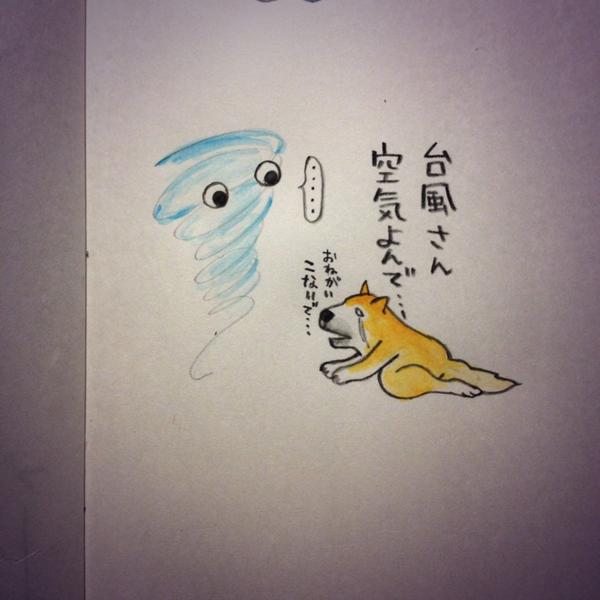 台風さん
空気よんで…
おねがい
こないで…
.....